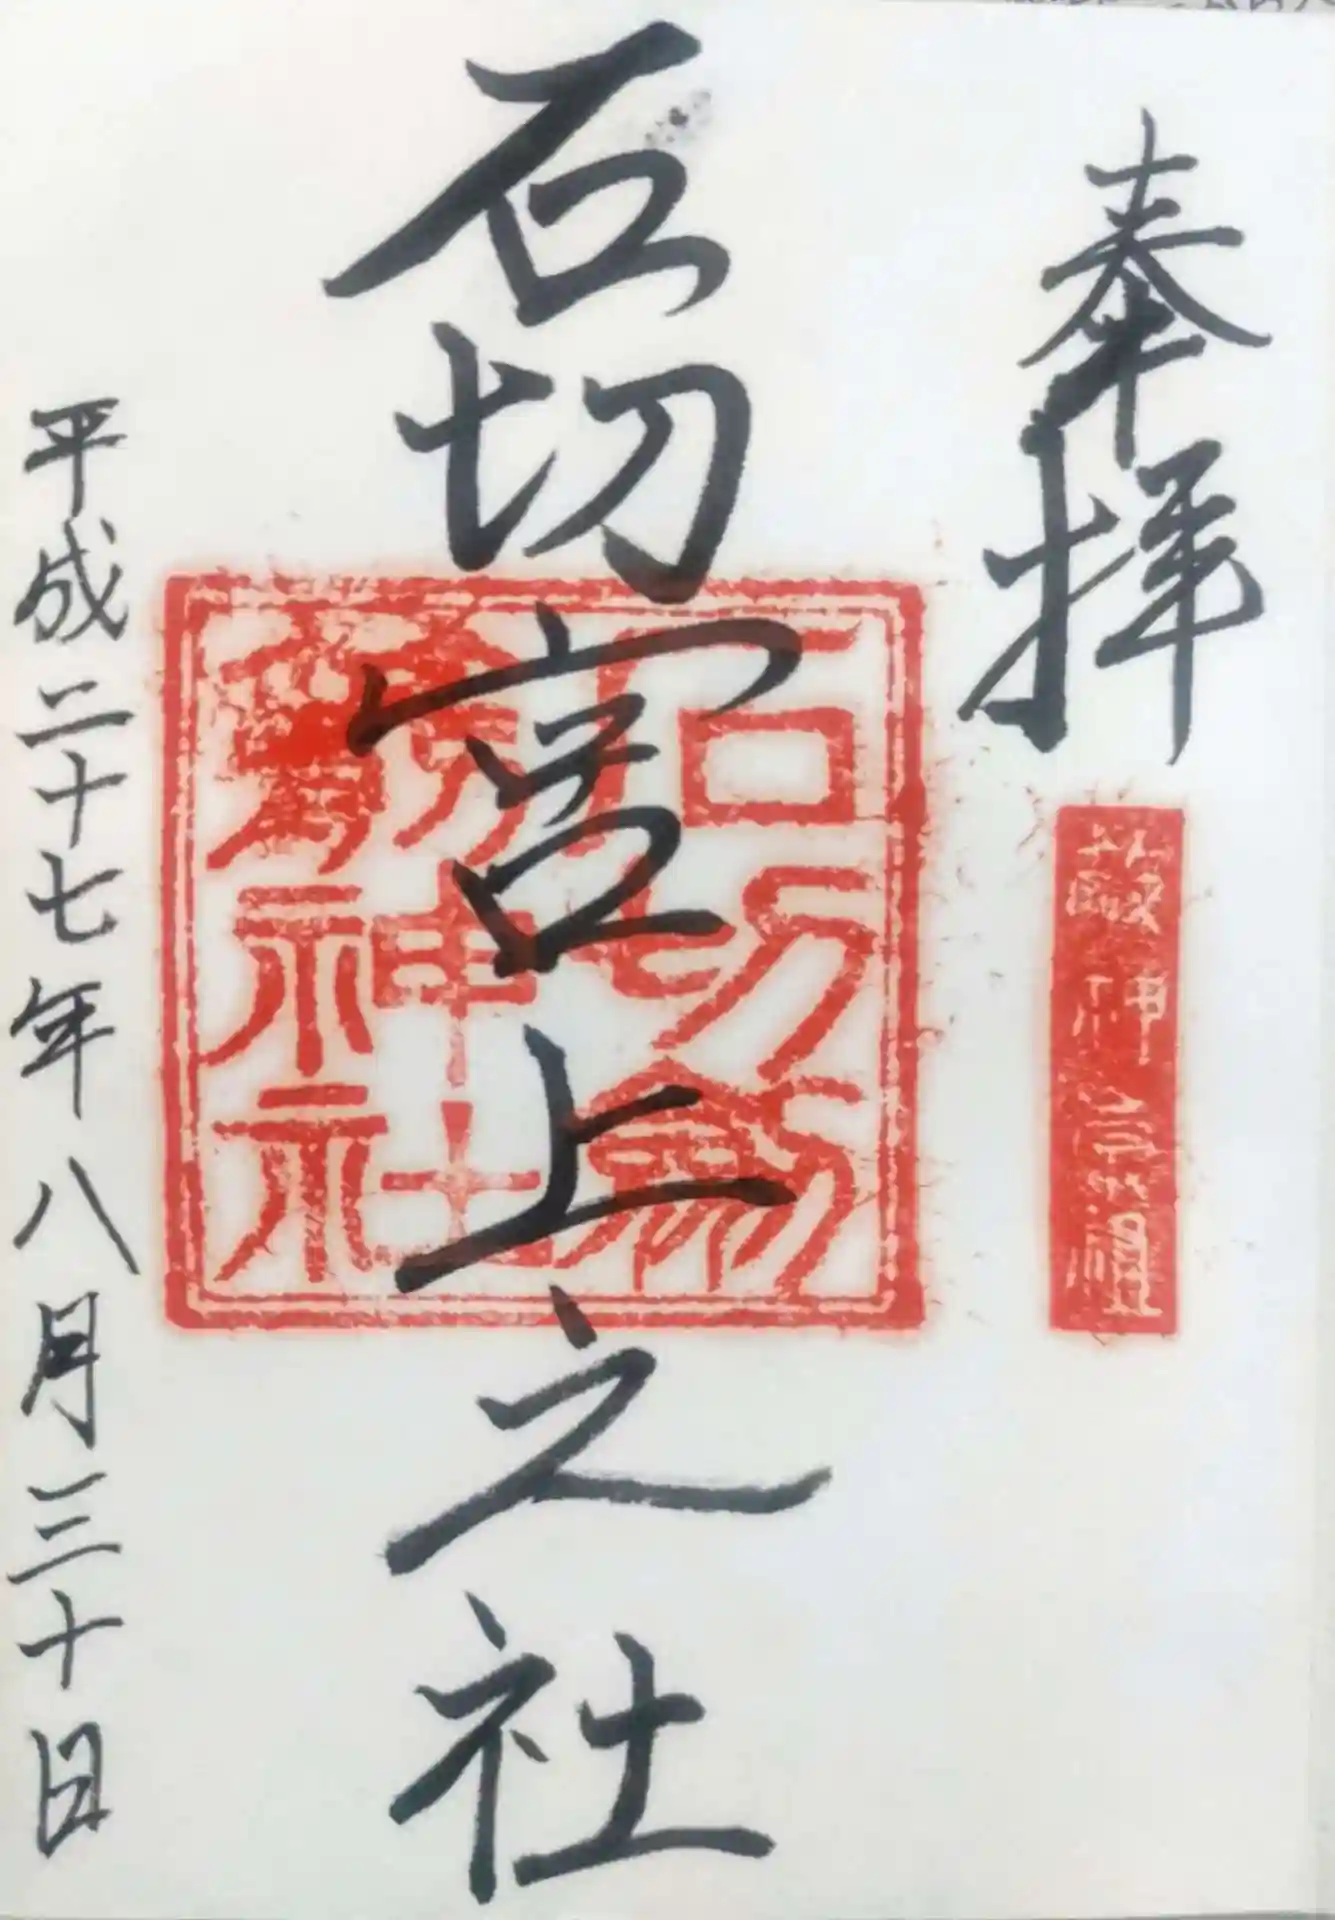 奉拝
石切宮上之社
石切劔箭神社
平成二十七年八月三十日